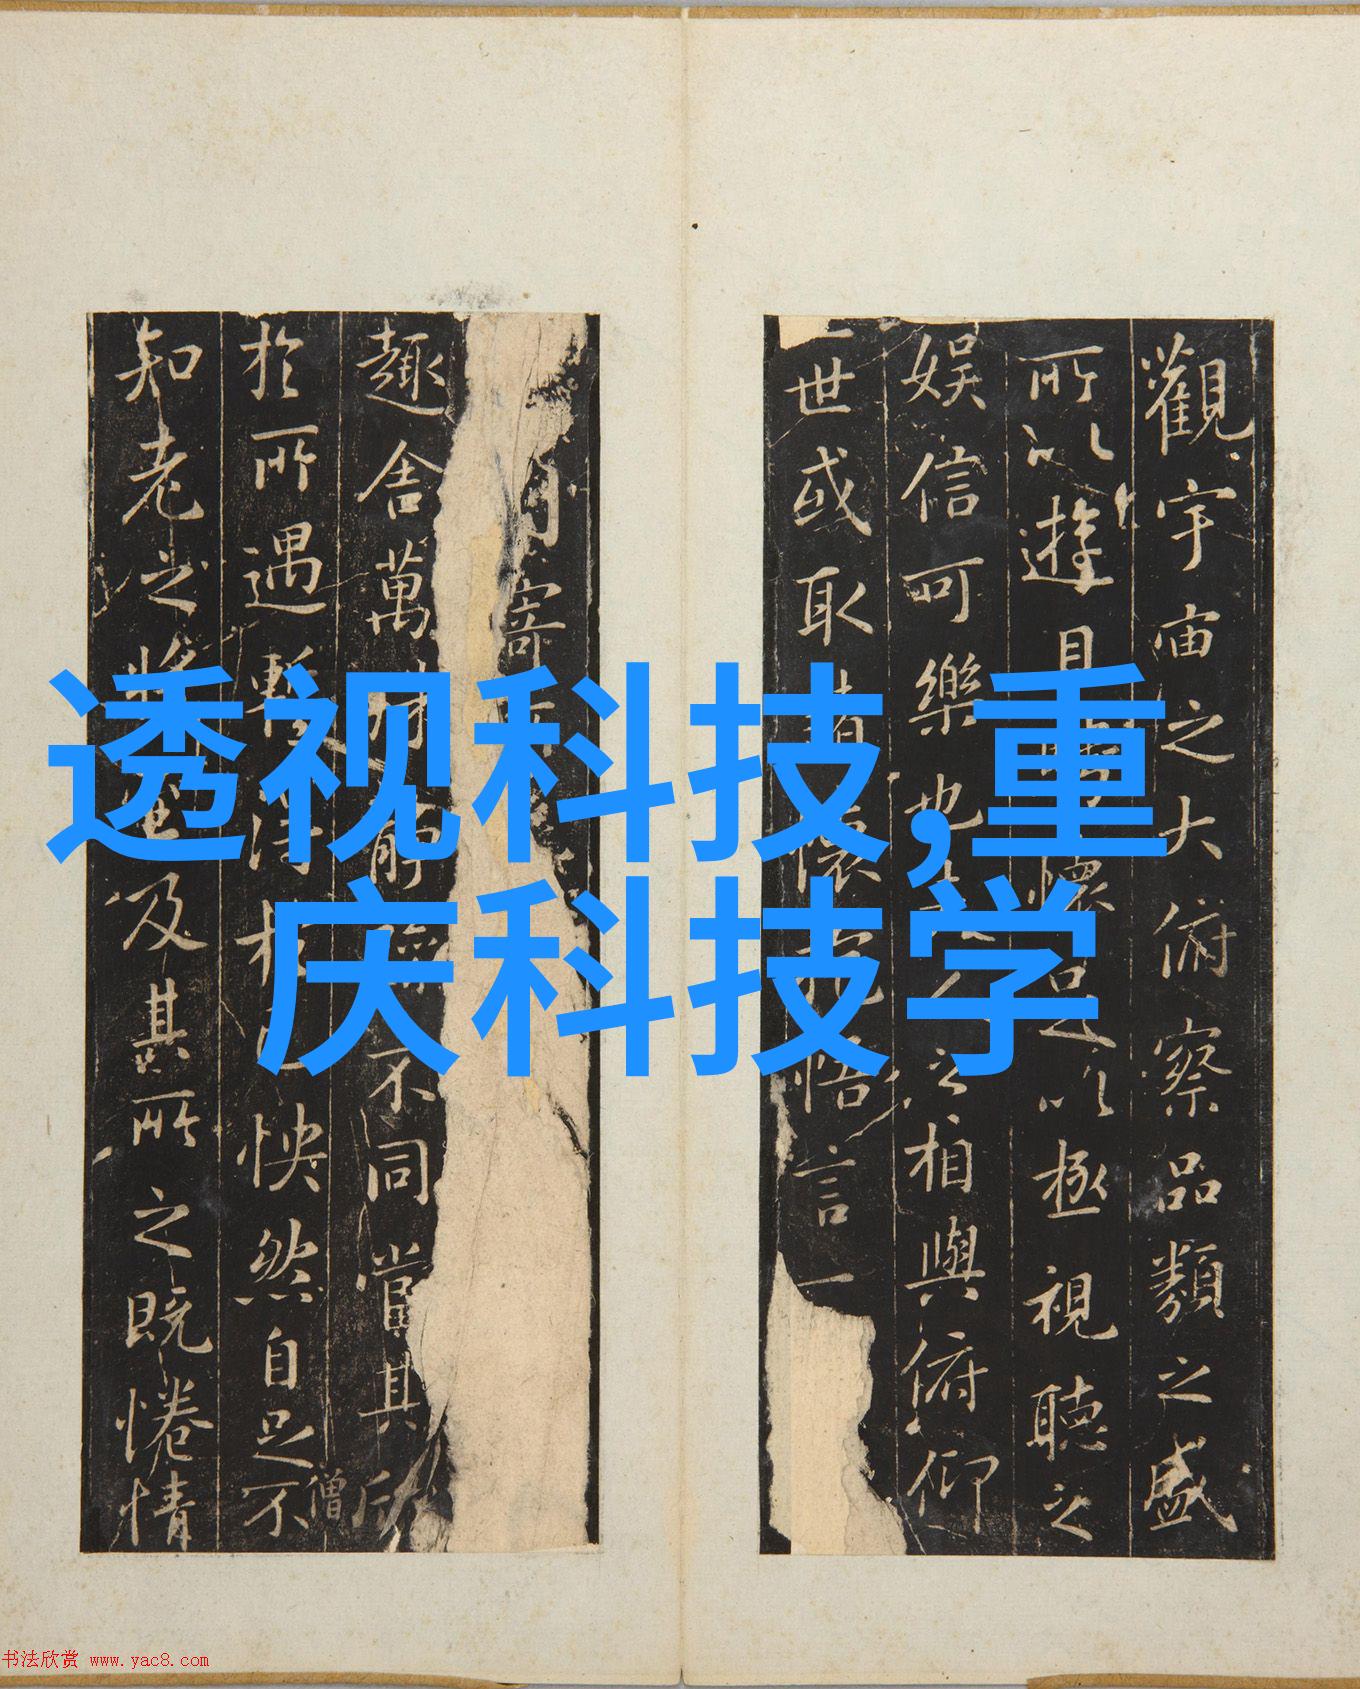 透视科技,重
庆科技学
觀宇宙之大俯察品類之盛
所以遊目騁懷足以極視聽之
娱信可樂也夫人之相與俯仰
世或取諸懷抱悟言一
寄
趣舍萬殊靜躁不同當其欣
僧
於所遇暫得於己怏然自足不
知老之將至及其所之既惓情
书法欣赏 www.yac8.com